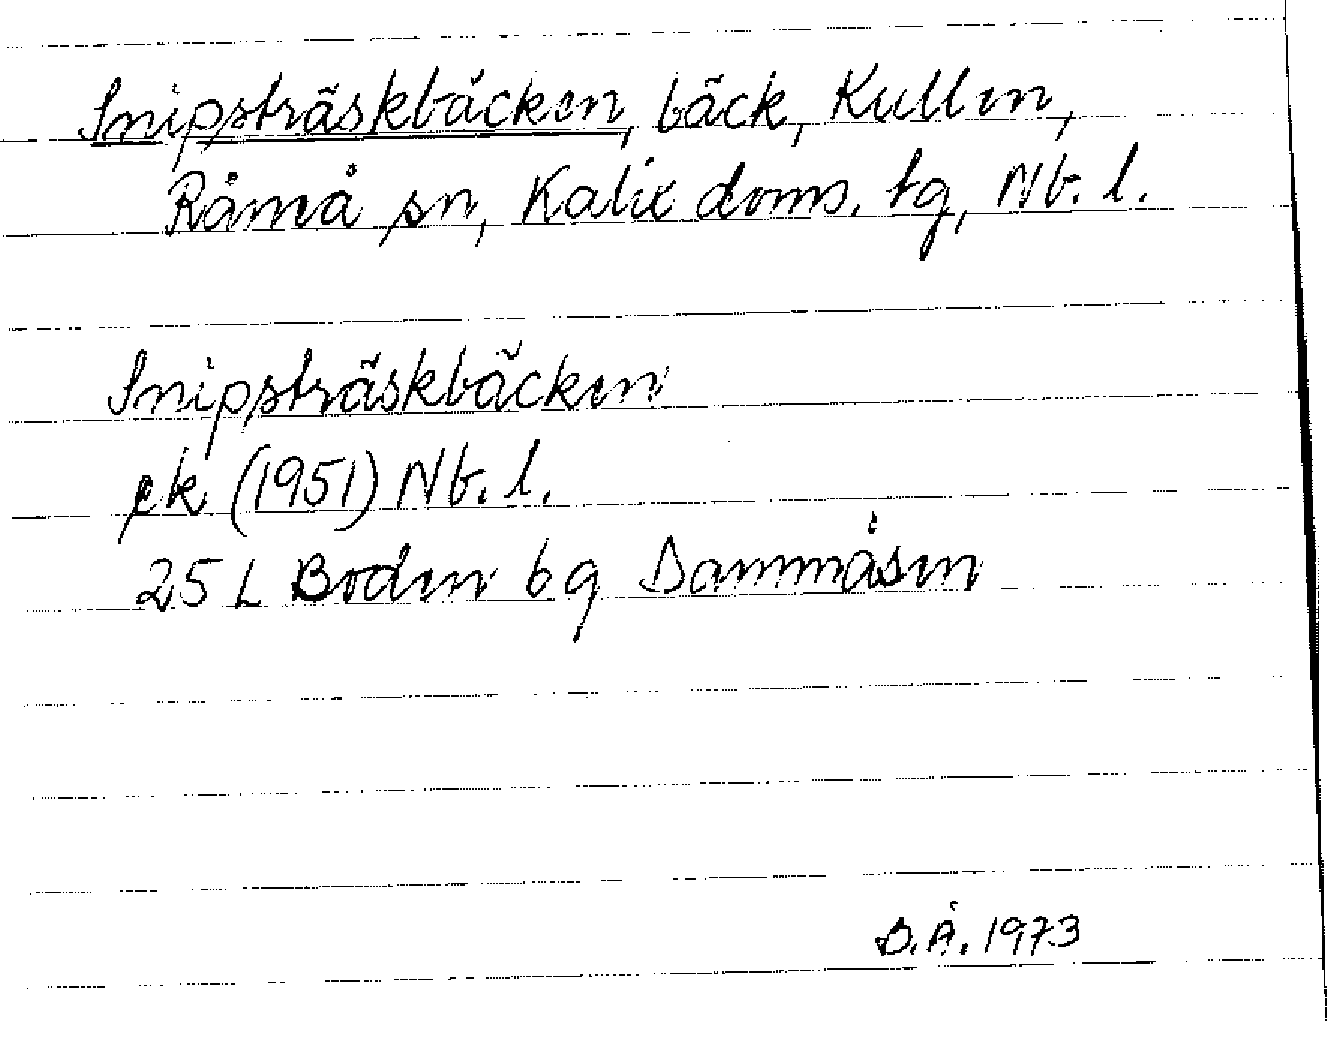 Snipsträskbäcken, bäck, Kullen,
Råneå sn, Kalix doms. tg, Nb. l.
Snipsträskbäcken
ek (1951) Nb. l.
25 L Boden 6 g Dammåsen
B.Å. 1973